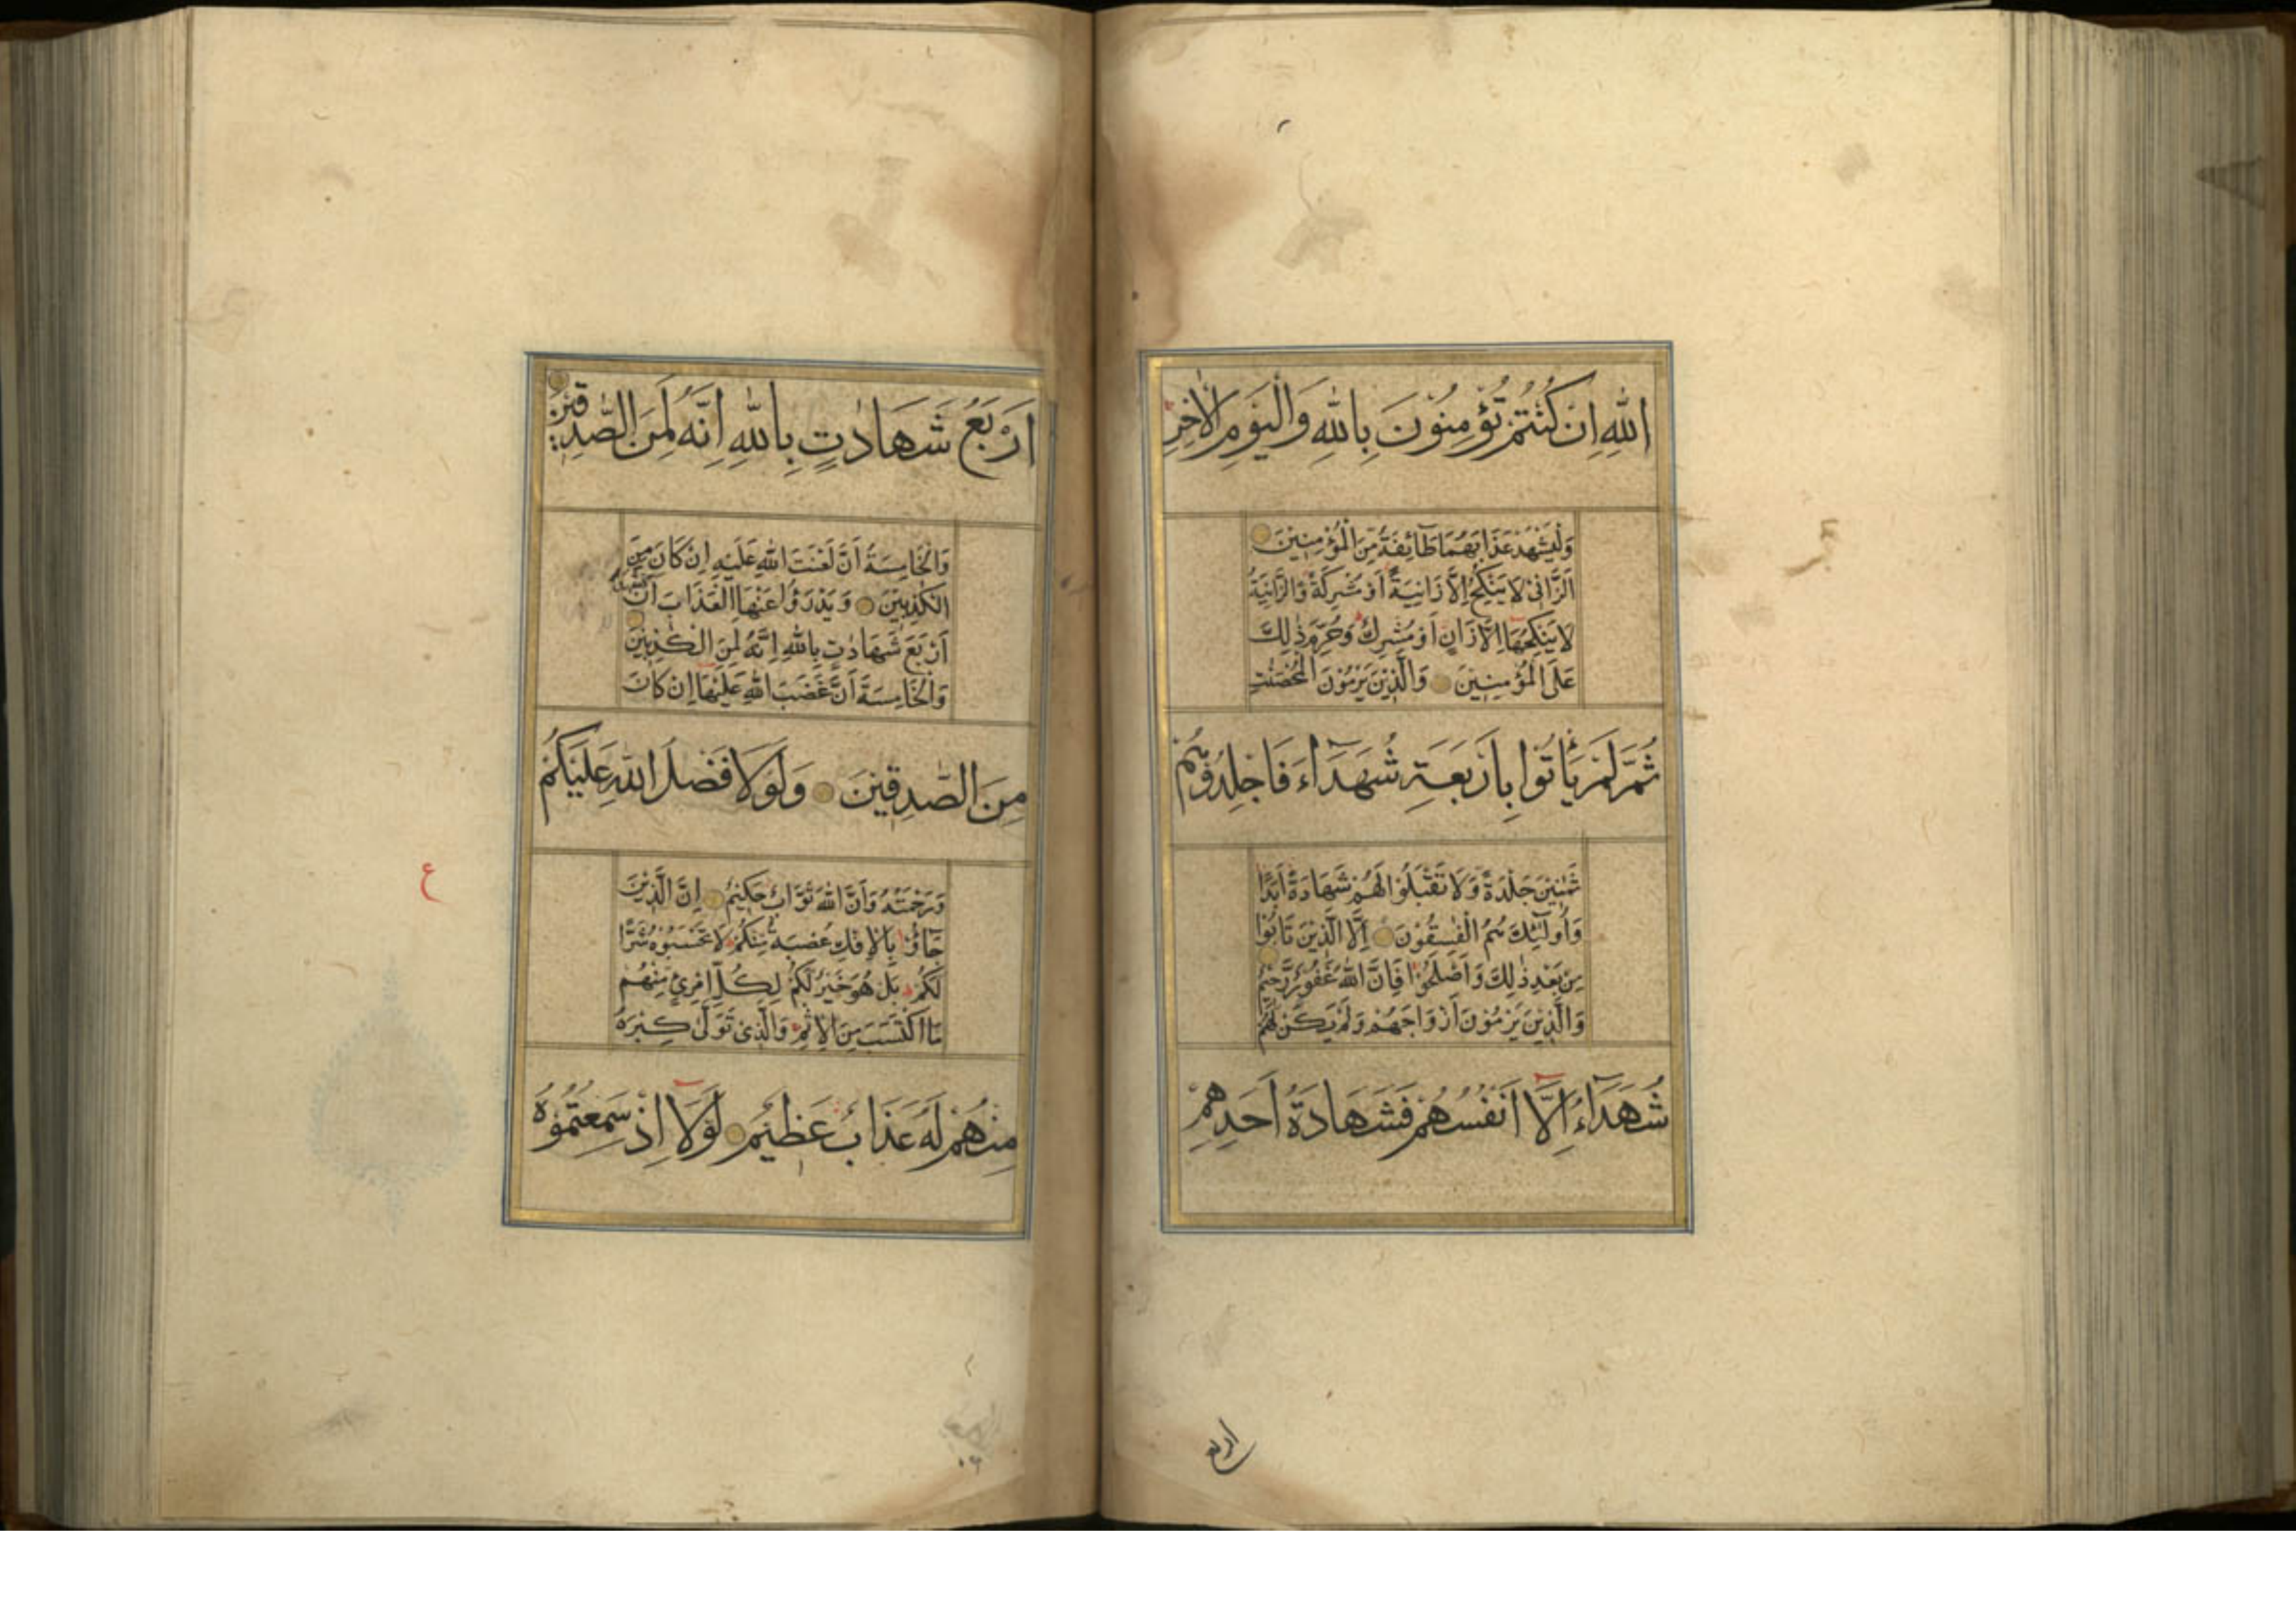 اللّٰهِ اِنْ كُنْتُمْ تُؤْمِنُوْنَ بِاللّٰهِ وَالْيَوْمِ الْاٰخِرِ
وَلْيَشْهَدْ عَذَابَهُمَا طَآئِفَةٌ مِّنَ الْمُؤْمِنِيْنَ
اَلزَّانِىْ لَا يَنْكِحُ اِلَّا زَانِيَةً اَوْ مُشْرِكَةً وَّالزَّانِيَةُ
لَا يَنْكِحُهَا اِلَّا زَانٍ اَوْ مُشْرِكٌ وَحُرِّمَ ذٰلِكَ
عَلَى الْمُؤْمِنِيْنَ وَالَّذِيْنَ يَرْمُوْنَ الْمُحْصَنٰتِ
ثُمَّ لَمْ يَأْتُوْا بِاَرْبَعَةِ شُهَدَآءَ فَاجْلِدُوْهُمْ
ثَمٰنِيْنَ جَلْدَةً وَّلَا تَقْبَلُوْا لَهُمْ شَهَادَةً اَبَدًا
وَاُولٰٓئِكَ هُمُ الْفٰسِقُوْنَ اِلَّا الَّذِيْنَ تَابُوْا
مِنْ بَعْدِ ذٰلِكَ وَاَصْلَحُوْا فَاِنَّ اللّٰهَ غَفُوْرٌ رَّحِيْمٌ
وَالَّذِيْنَ يَرْمُوْنَ اَزْوَاجَهُمْ وَلَمْ يَكُنْ لَهُمْ
شُهَدَآءُ اِلَّا اَنْفُسُهُمْ فَشَهَادَةُ اَحَدِهِمْ
اربع
اَرْبَعُ شَهَادٰتٍ بِاللّٰهِ اِنَّهُ لَمِنَ الصّٰدِقِيْنَ
وَالْخَامِسَةُ اَنَّ لَعْنَتَ اللّٰهِ عَلَيْهِ اِنْ كَانَ مِنَ
الْكٰذِبِيْنَ وَيَدْرَؤُا عَنْهَا الْعَذَابَ اَنْ تَشْهَدَ
اَرْبَعَ شَهَادٰتٍ بِاللّٰهِ اِنَّهُ لَمِنَ الْكٰذِبِيْنَ
وَالْخَامِسَةَ اَنَّ غَضَبَ اللّٰهِ عَلَيْهَا اِنْ كَانَ
مِنَ الصّٰدِقِيْنَ وَلَوْلَا فَضْلُ اللّٰهِ عَلَيْكُمْ
وَرَحْمَتُهُ وَاَنَّ اللّٰهَ تَوَّابٌ حَكِيْمٌ اِنَّ الَّذِيْنَ
جَآؤُ بِالْاِفْكِ عُصْبَةٌ مِّنْكُمْ لَا تَحْسَبُوْهُ شَرًّا
لَكُمْ بَلْ هُوَ خَيْرٌ لَكُمْ لِكُلِّ امْرِئٍ مِّنْهُمْ
مَا اكْتَسَبَ مِنَ الْاِثْمِ وَالَّذِىْ تَوَلّٰى كِبْرَهُ
مِنْهُمْ لَهُ عَذَابٌ عَظِيْمٌ لَوْلَا اِذْ سَمِعْتُمُوْهُ
ع